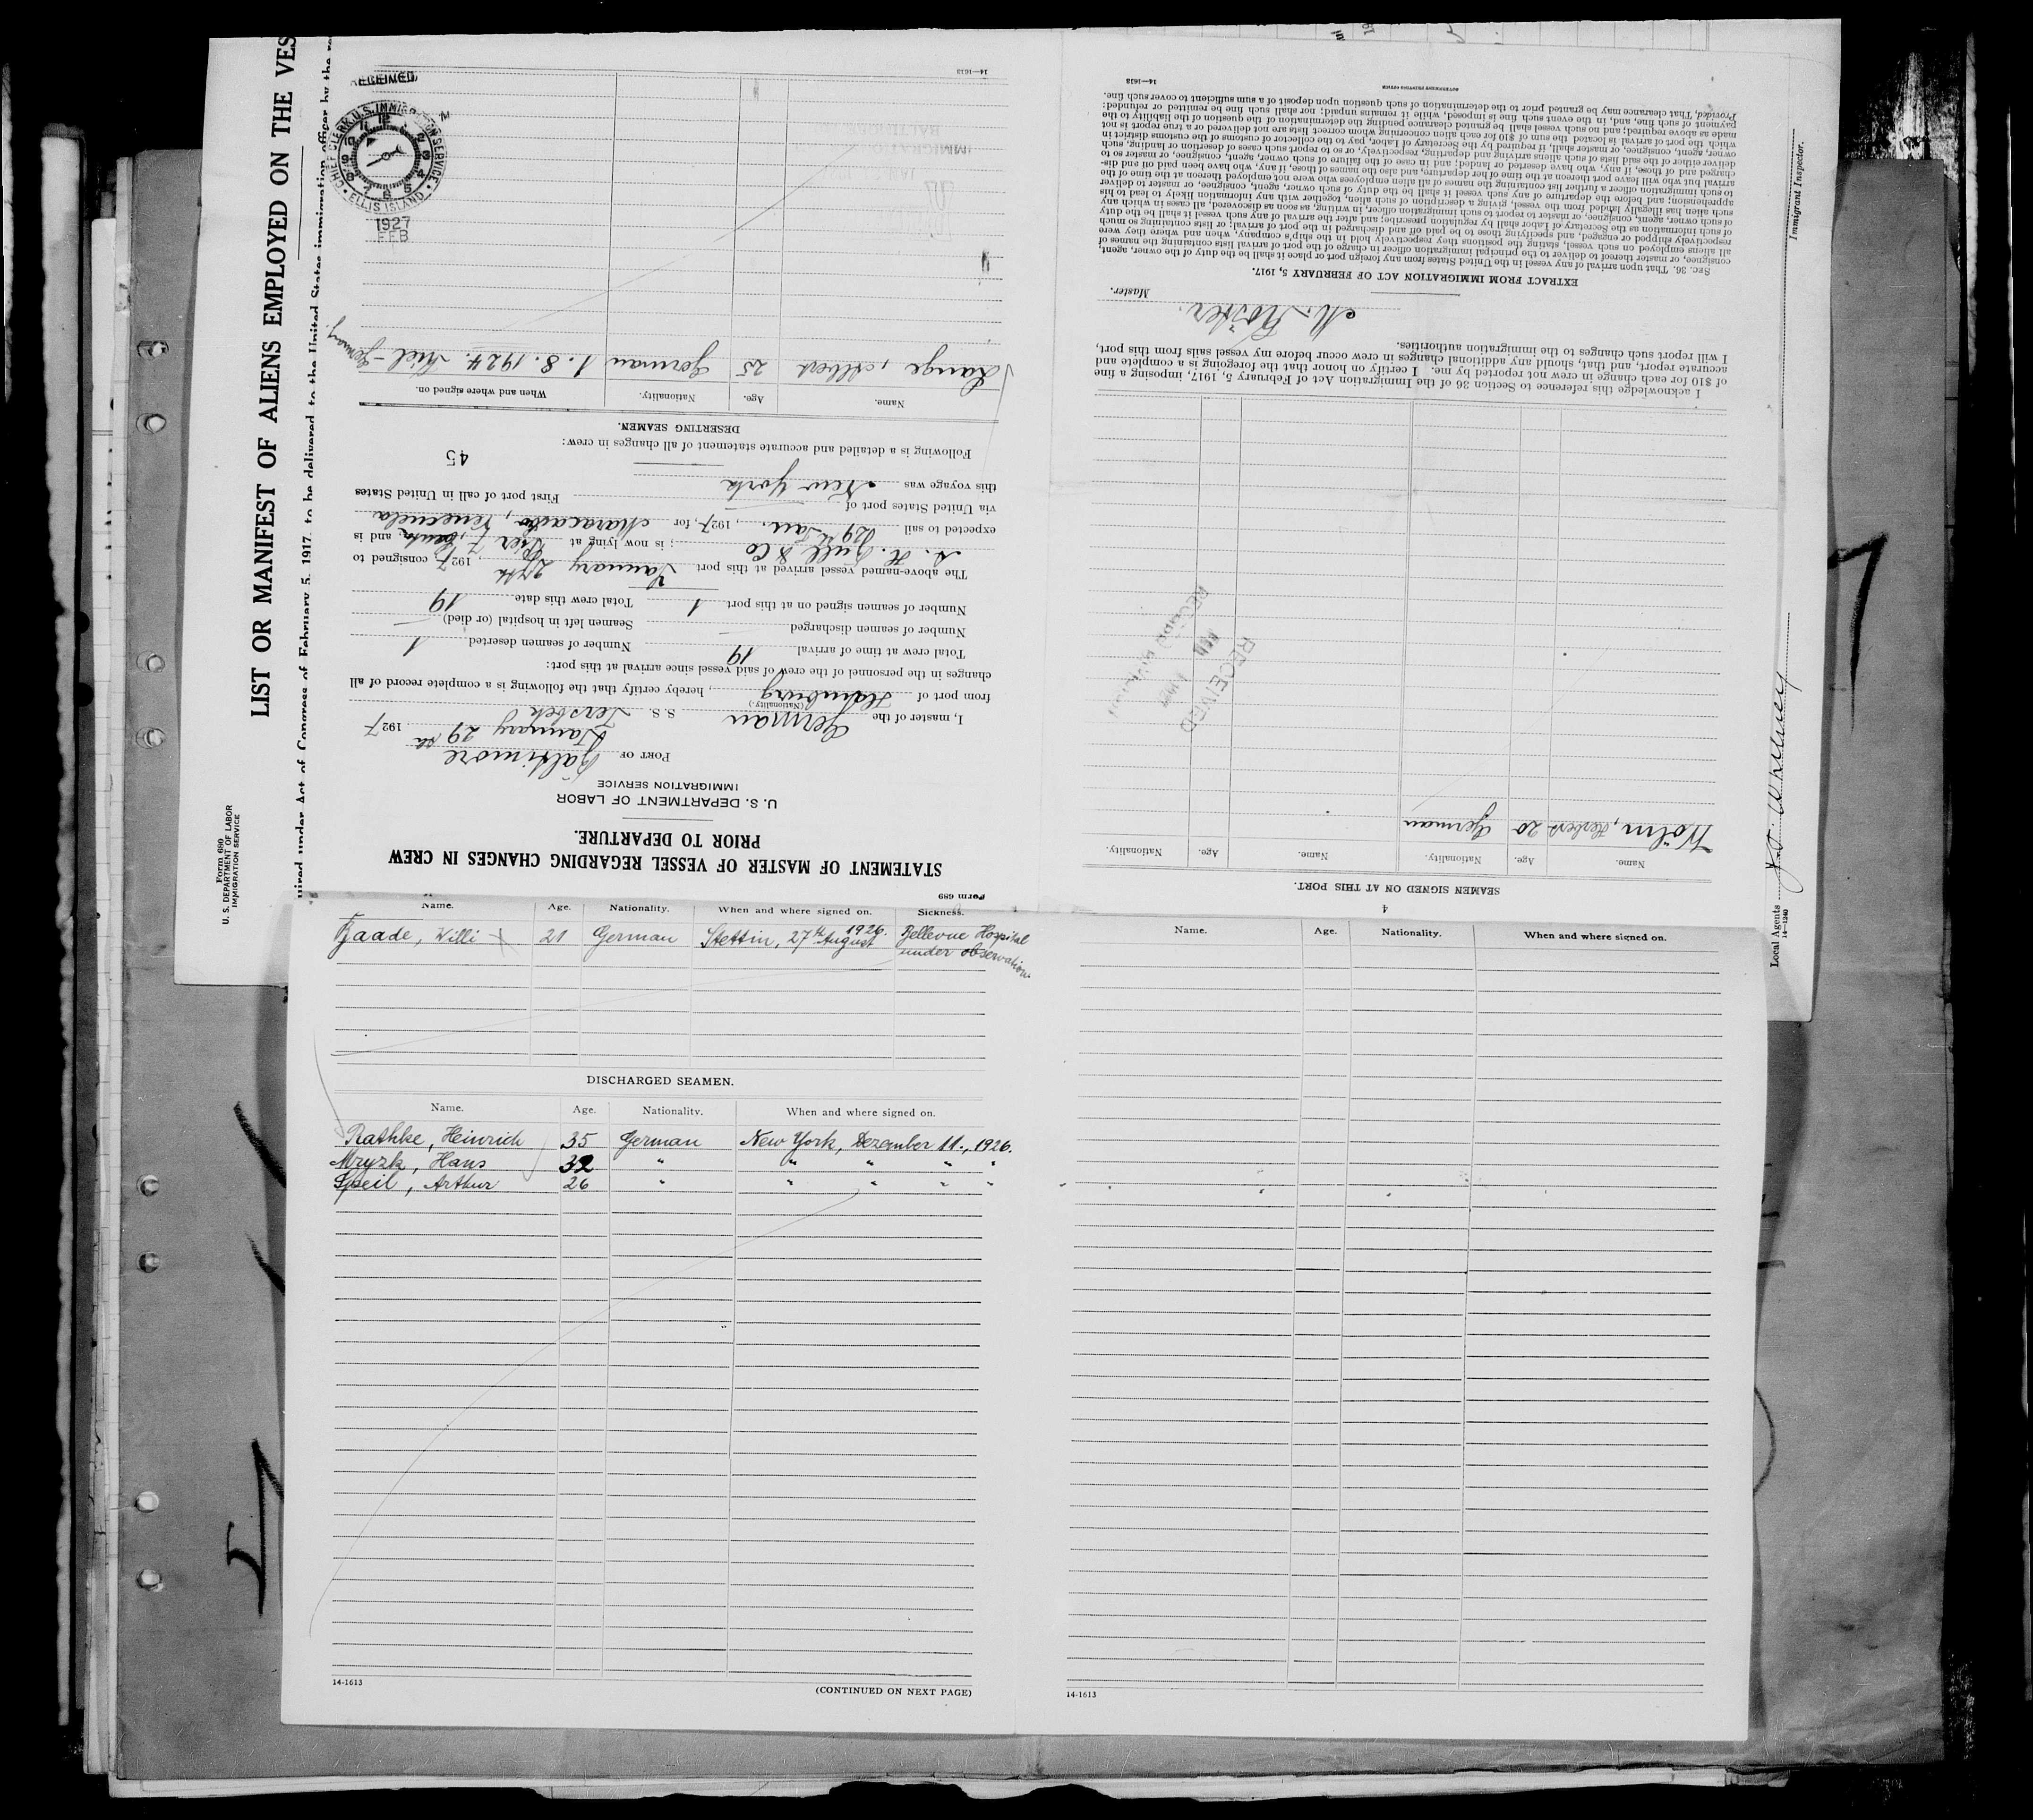 Form 689
STATEMENT OF MASTER OF VESSEL REGARDING CHANGES IN CREW
PRIOR TO DEPARTURE.
U. S. DEPARTMENT OF LABOR
IMMIGRATION SERVICE
PORT OF Baltimore
January 29th 1927
I, master of the German S. S.
(Nationality.)
from port of Hamburg, hereby certify that the following is a complete record of all
changes in the personnel of the crew of said vessel since arrival at this port:
Total crew at time of arrival 19 Number of seamen deserted 1
Number of seamen discharged Seamen left in hospital (or died)
Number of seamen signed on at this port 1 Total crew this date 19
The above-named vessel arrived at this port January 27th, 1927, consigned to
A. H. Bull & Co; is now lying at Pier 7, and is
expected to sail 29th Jan., 1927, for Maracaibo, Venezuela
via United States port of First port of call in United States
this voyage was New York
45
Following is a detailed and accurate statement of all changes in crew:
DESERTING SEAMEN.
Name. Age. Nationality. When and where signed on.
Lange, Albert 25 German 1.8.1924. Kiel - Germany
14—1618
RECEIVED
CHIEF CLERK U.S. IMMIGRATION SERVICE
ELLIS ISLAND
1927
FEB
4
SEAMEN SIGNED ON AT THIS PORT.
Name. Age. Nationality. Name. Age. Nationality.
Wölm, Herbert 20 German
RECEIVED
I acknowledge this reference to Section 36 of the Immigration Act of February 5, 1917, imposing a fine
of $10 for each change in crew not reported by me. I certify on honor that the foregoing is a complete and
accurate report, and that, should any additional changes in crew occur before my vessel sails from this port,
I will report such changes to the immigration authorities.
M. Köster.
Master.
EXTRACT FROM IMMIGRATION ACT OF FEBRUARY 5, 1917.
SEC. 36. That upon arrival of any vessel in the United States from any foreign port or place it shall be the duty of the owner, agent,
consignee, or master thereof to deliver to the principal immigration officer in charge of the port of arrival lists containing the names of
all aliens employed on such vessel, stating the positions they respectively hold in the ship's company, when and where they were
respectively shipped or engaged, and specifying those to be paid off and discharged in the port of arrival; or lists containing so much
of such information as the Secretary of Labor shall by regulation prescribe; and after the arrival of any such vessel it shall be the duty
of such owner, agent, consignee, or master to report to such immigration officer, in writing, as soon as discovered, all cases in which any
such alien has illegally landed from the vessel, giving a description of such alien, together with any information likely to lead to his
apprehension; and before the departure of any such vessel it shall be the duty of such owner, agent, consignee, or master to deliver
to such immigration officer a further list containing the names of all alien employees who were not employed thereon at the time of the
arrival but who will leave port thereon at the time of her departure, and also the names of those, if any, who have been paid off and dis-
charged and of those, if any, who have deserted or landed; and in case of the failure of such owner, agent, consignee, or master so to
deliver either of the said lists of such aliens arriving and departing, respectively, or so to report such cases of desertion or landing, such
owner, agent, consignee, or master shall, if required by the Secretary of Labor, pay to the collector of customs of the customs district in
which the port of arrival is located the sum of $10 for each alien concerning whom correct lists are not delivered or a true report is not
made as above required; and no such vessel shall be granted clearance pending the determination of the question of the liability to the
payment of such fine, and, in the event such fine is imposed, while it remains unpaid; nor shall such fine be remitted or refunded:
Provided, That clearance may be granted prior to the determination of such question upon deposit of a sum sufficient to cover such fine.
GOVERNMENT PRINTING OFFICE
14—1618
Form 690
U. S. DEPARTMENT OF LABOR
IMMIGRATION SERVICE
LIST OR MANIFEST OF ALIENS EMPLOYED ON THE VES
uired under Act of Congress of February 5, 1917, to be delivered to the United States immigration officer by the re
Local Agents
14—1240
Immigrant Inspector.
Name. Age. Nationality. When and where signed on. Sickness.
Baade, Willi 21 German Stettin, 27th August 1926. Bellevue Hospital
under observation
DISCHARGED SEAMEN.
Name. Age. Nationality. When and where signed on.
Rathke, Heinrich 35 German New York, Dezember 11., 1926.
Mryzk, Hans 32 " " " " "
Speil, Arthur 26 " " " " "
14-1613
(CONTINUED ON NEXT PAGE)
Name. Age. Nationality. When and where signed on.
14-1613